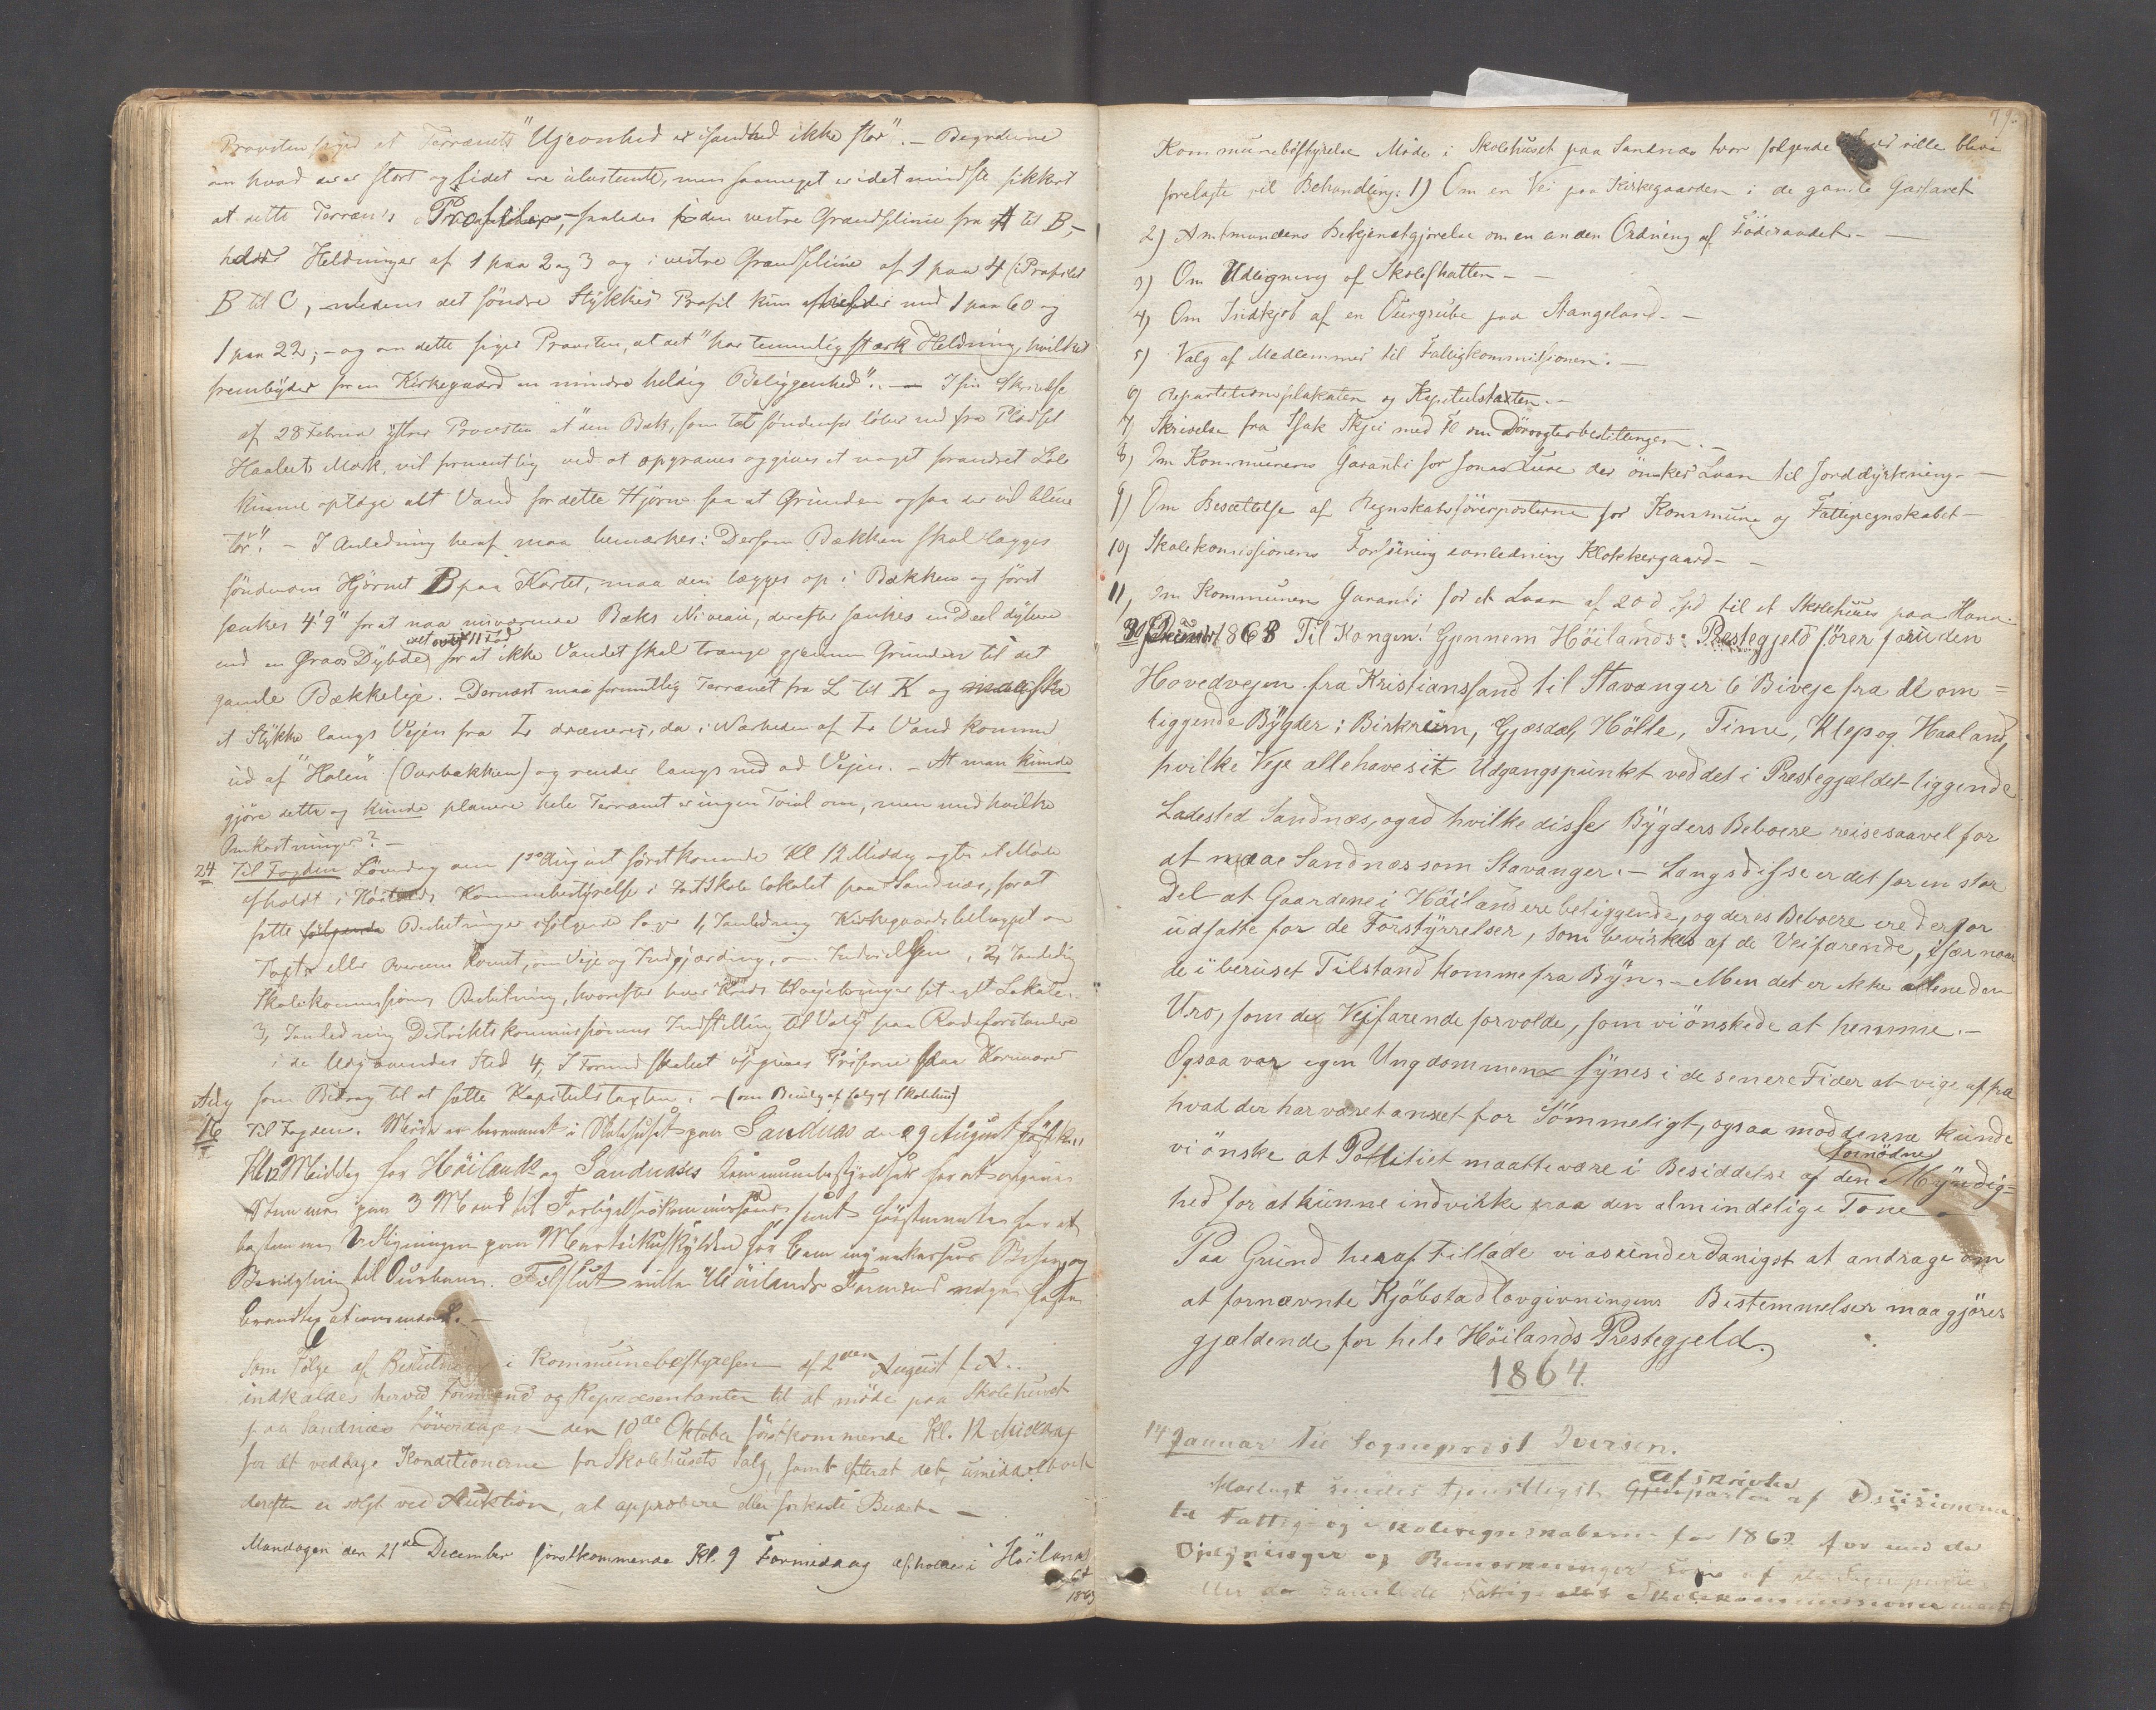 Provsten siger at Terrænets "Ujevnhed er isandhed ikke stor". – Begreberne
om hvad der er stort og lidet ere ubestemte, men saameget er i det mindste sikkert
at dette Terræn's Profiler, – saaledes i den vestre Grændselinie fra A til B, –
holder Heldninger af 1 paa 2 og 3 og i vestre Grændselinie af 1 paa 4 (Profilet
B til C, – medens det söndre Stykkes Profil kun afhelder med 1 paa 60 og
1 paa 22; – og om dette siger Provsten, at det "har temmelig stærk Heldning, hvilket
frembyder for en Kirkegaard en mindre heldig Beliggenhed". – I sin Skrivelse
af 28 Februar yttrer Provsten at "den Bæk, som tæt söndenfor löber ned fra Pladset
Haalands Mark, vil formentlig ved at opgraves og gives et noget forandret Löb
kunne optage alt Vand for dette Hjörne saa at Grunden ogsaa der vil blive
tör". – I Anledning heraf maa bemærkes: Dersom Bækken skal lægges
söndenom Hjörnet B paa Kartet, maa den lægges op i Bakken og först
sænkes 4' 9" for at naa nuværende Bæks Niveau, derefter sænkes en Deel dybere
end en Gravs Dybde for at ikke Vandet skal trænge gjennem Grunden til det
gamle Bækkeleje. Dernæst maa formentlig Terrænet fra L til K og
et Stykke langs Vejen fra L dræneres, da i Nærheden af L Vand kommer
ud af "Holen" (Ourbakken) og render langs ned ad Vejen. – At man kunde
gjöre dette og kunde planere hele Terrænet er ingen Tvivl om, men med hvilke
Omkostninger? –
24 Til Fogden Löverdag den 1ste August förstkommende Kl 12 Middag agtes et Möde
afholdt i Höilands Kommunebestyrelse i Fast Skole lokalet paa Sandnæs, for at
fatte fölgende Beslutninger i fölgende Sager 1, Anledning Kirkegaards tillægget om
Taxt eller Overenskomst, om Veje og Indgjærding, om Indvielsen, 2, Anledning
Skolekommissions Beslutning, hvorefter hver Kreds tilvejebringer sit eget Lokale.
3, Anledning Distriktskommissionens Indstilling til Valg paa Rodeforstandere
i de Udgaaendes Sted 4, I Formandskabet opgives Priserne paa Kornvarer
som Bidrag til at sætte Kapitelstaxten. –
Aug
16 Til Fogden. Möde er berammet i Skolehuset paa Sandnæs den 29 August förstk.
Kl 12 Middag for Höilands og Sandnæses Kommunebestyrelser for at afgive
Stemmer paa 3 Mænd til Forligelseskommissær, samt förstnævnte for at
bestemme Udligningen paa Matrikulskylden
Bevilgning til Ourhavn. Tilslut ville Höilands Formænd vælge
Som Fölge af Beslutning i Kommunebestyrelsen af 2den August
indkaldes herved Formænd og Repræsentanter til at möde paa Skolehuset
paa Sandnæs Löverdagen – den 10de Oktober förstkommende Kl. 12 Middag
for at vedtage Konditionerne for Skolehusets Salg, samt efterat det, umiddelbart
derefter er solgt ved Auktion, at approbere eller forkaste Budet –
Mandagen den 21de December förstkommende Kl. 9 Formidaag afholdes i Höilands
1863
79.
Kommunebestyrelse Möde i Skolehuset paa Sandnæs hvor fölgende ville blive
forelagte til Behandling: 1) Om en Vei paa Kirkegaarden i de gamle
2) Amtmandens Bekjendtgjörelse om en anden Ordning af Föderaadet –
3) Om Udligning af Skoleskatten –
4) Om Indkjöb af en Ourgrube paa Stangeland –
5) Valg af Medlemmer til Fattigkommissionen. –
6) Repartitionsplakaten og Kapitelstaxten. –
7) Skrivelse fra Isak Skjei med Fl om Dörvogterbestillingen. –
8) Om Kommunens Garanti for Jonas Lura der önsker Laan til Jorddyrkning –
9) Om Besættelse af Regnskabsförerposterne for Kommune og Fattigregnskabet –
10) Skolekomissionens Forföining ianledning Klokkergaard –
11, Om Kommunens Garanti for et Laan af 200 Spd til et Skolehuus paa Hana.
1863 Til Kongen! Gjennem Höilands Prestegjeld förer foruden
Hovedvejen fra Kristianssand til Stavanger 6 Biveje fra de om=
liggende Bÿgder: Birkrem, Gjæsdal, Hölle, Time, Klep og Haaland,
hvilke Veje alle have sit Udgangspunkt ved det i Prestegjældet liggende
Ladested Sandnæs, og ad hvilke disse Bÿgders Beboere reise saavel for
at naae Sandnæs som Stavanger. – Langs disse er det for en stor
Del at Gaardene i Höiland ere beliggende, og deres Beboere ere derfor
udsatte for de Forstyrrelser, som bevirkes af de Veifarende, især naar
de i beruset Tilstand komme fra Byn. – Men det er ikke allene den
Uro, som de Vejfarende forvolde, som vi önskede at hemme. –
Ogsaa vor egen Ungdommen synes i de senere Tider at vige af fra
hvad der har været anset for Sömmeligt, ogsaa mod denne kunde
vi önske at Politiet maatte være i Besiddelse af den fornödne Myndig=
hed for at kunne indvirke paa den almindelige Tone
Paa Grund heraf tillade vi os underdanigst at andrage om
at fornævnte Kjöbstadlovgivningens Bestemmelser maa gjöres
gjældende for hele Höilands Prestegjeld.
1864.
14 Januar Til Sogneprest Iversen.
Vedlagt sendes tjenstligst Gjenparten Afskrivter af Decisionerne
til Fattig- og Skoleregnskaberne for 1863 for med de
Oplysninger og Bemærkninger som af